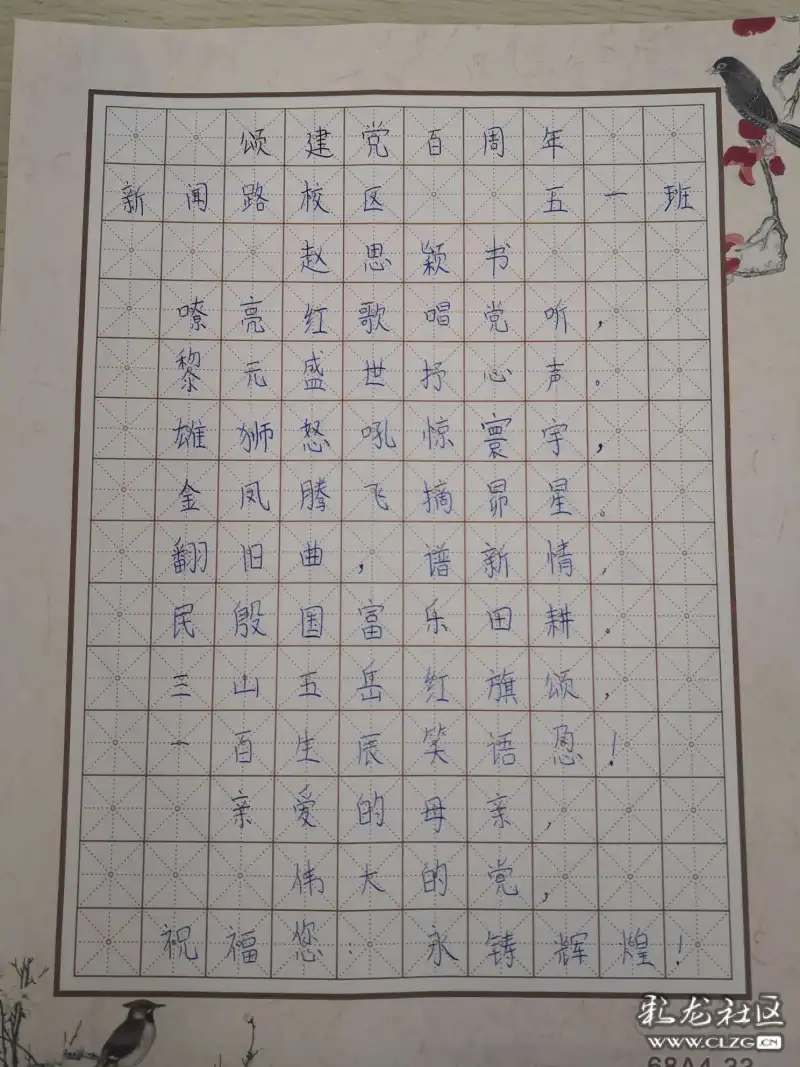 颂建党百周年
新闻路校区 五一班
赵思颖书
嘹亮红歌唱党听，
黎元盛世抒心声。
雄狮怒吼惊寰宇，
金凤腾飞摘昴星。
翻旧曲，谱新情，
民殷国富乐田耕。
三山五岳红旗颂，
一百生辰笑语盈！
亲爱的母亲，
伟大的党，
祝福您：永铸辉煌！
彩龙社区
WWW.CLZG.CN
68A4-22